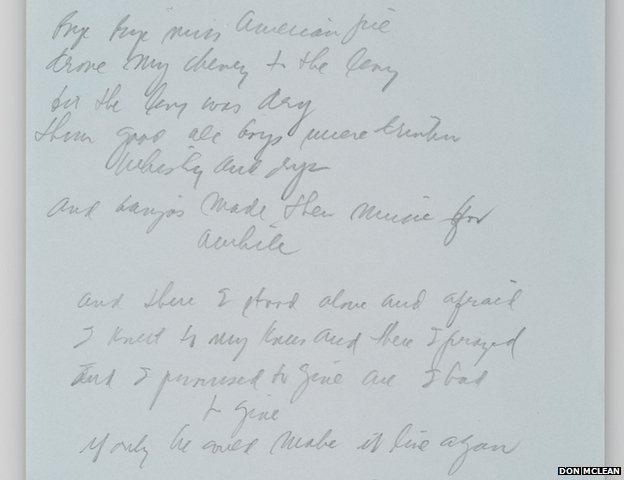 Bye bye miss American pie
drove my chevy to the levy
but the levy was dry
them good ole boys were drinkin
whisky and rye
and banjos made their music for
awhile
and there I stood alone and afraid
I knelt to my knees and there I prayed
and I promised to give all I had
to give
if only he could make it live again
DON MCLEAN